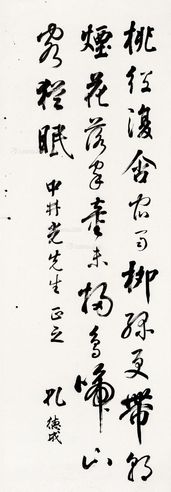 桃紅復含宿雨柳綠更帶朝
煙花落家童未掃鳥啼山
客猶眠
中村光先生正之
孔德成